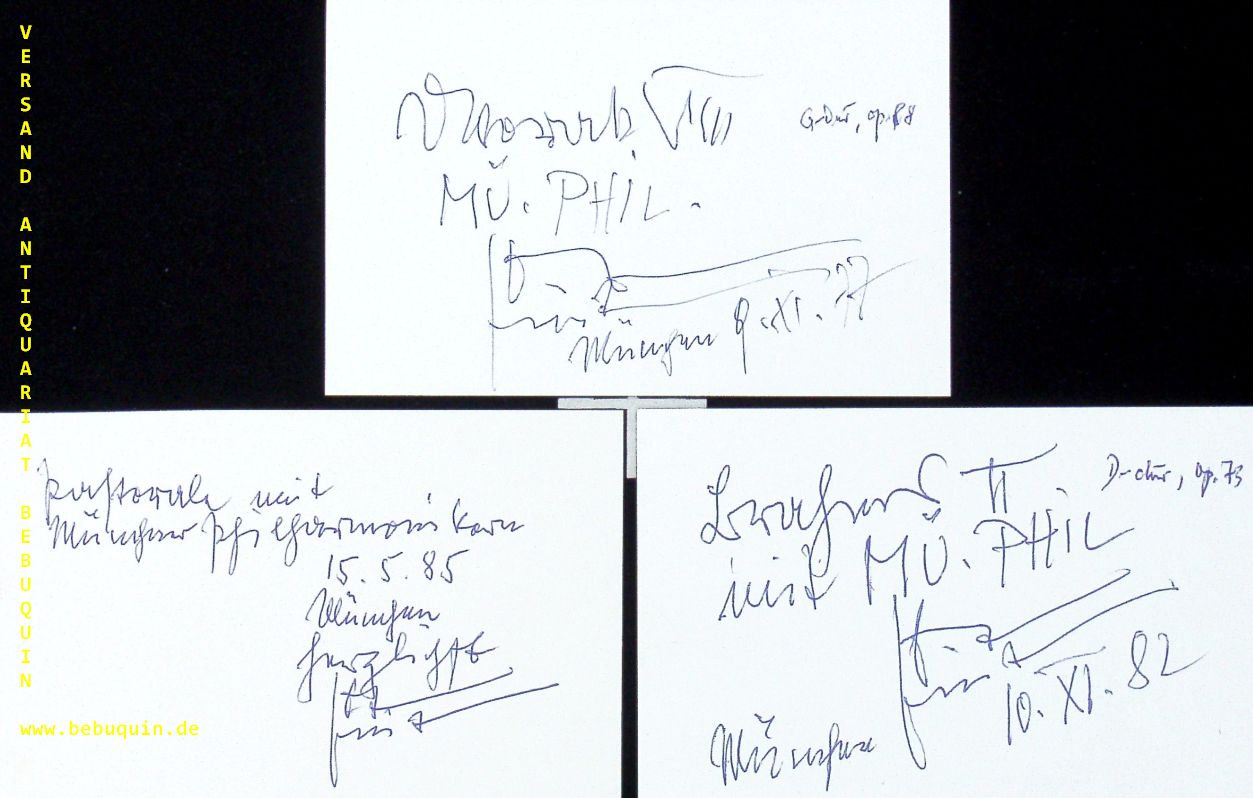 VERSAND ANTIQUARIAT BEBUQUIN
www.bebuquin.de
Dvorak VIII G-Dur, op. 88
MÜ. PHIL.
München 9. XI. 77
Pastorale mit
Münchner Philharmonikern
15. 5. 85
München
herzlichst
Brahms II. D-dur, op. 73
mit MÜ. PHIL
10. XI. 82
München